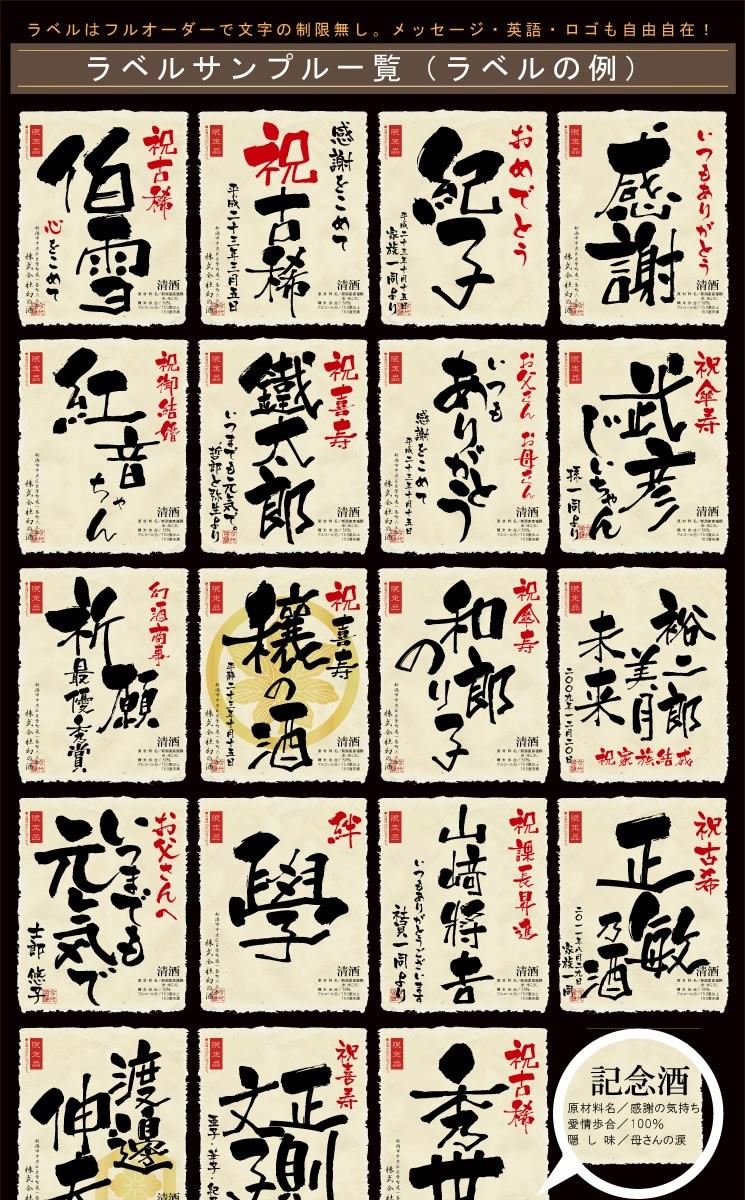 ラベルはフルオーダーで文字の制限無し。メッセージ・英語・ロゴも自由自在！
ラベルサンプル一覧（ラベルの例）
限定品
祝古稀
伯雪
心をこめて
株式会社幻の酒
清酒
限定品
感謝をこめて
祝
古稀
平成二十三年三月五日
清酒
限定品
おめでとう
紀子
平成二十三年十月十五日
家族一同より
清酒
限定品
いつもありがとう
感謝
株式会社幻の酒
清酒
限定品
祝御結婚
紅音
ちゃん
株式会社幻の酒
清酒
限定品
祝喜寿
鐵太郎
いつまでも元気で。
哲郎と弥生より
清酒
限定品
お父さん お母さん
いつも
ありがとう
感謝をこめて
平成二十三年十月十五日
清酒
限定品
祝傘寿
武彦
じいちゃん
孫一同より
清酒
限定品
幻酒商事
祈願
最優秀賞
株式会社幻の酒
清酒
限定品
祝
喜寿
穣の酒
平成二十三年十月十五日
清酒
限定品
祝傘寿
和郎
のり子
株式会社幻の酒
清酒
限定品
裕二郎
美月
未来
二〇〇九年十二月二〇日
祝家族結成
限定品
お父さんへ
いつまでも
元気で
士郎 悠子
限定品
絆
學
株式会社幻の酒
清酒
限定品
祝課長昇進
山﨑將吉
いつもありがとうございます
社員一同より
清酒
限定品
祝古希
正敏
乃酒
二〇一一年八月二九日
家族一同
清酒
限定品
渡邉
伸
限定品
祝喜寿
正則
文子
限定品
祝古稀
秀世
記念酒
原材料名／感謝の気持ち
愛情歩合／100%
隠し味／母さんの涙